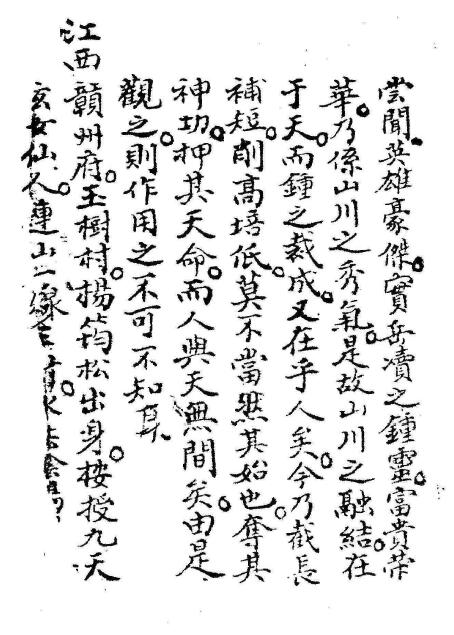 嘗聞英雄豪傑實岳瀆之鍾靈富貴荣
華乃係山川之秀氣是故山川之融結在
于天而鍾之裁成又在乎人矣今乃截長
補短削高培低莫不當然其始也奪其
神功押其天命而人與天無間矣由是
觀之則作用之不可不知耳
江西贛州府玉樹村揚筠松出身梭授九天
玄女仙人連山二